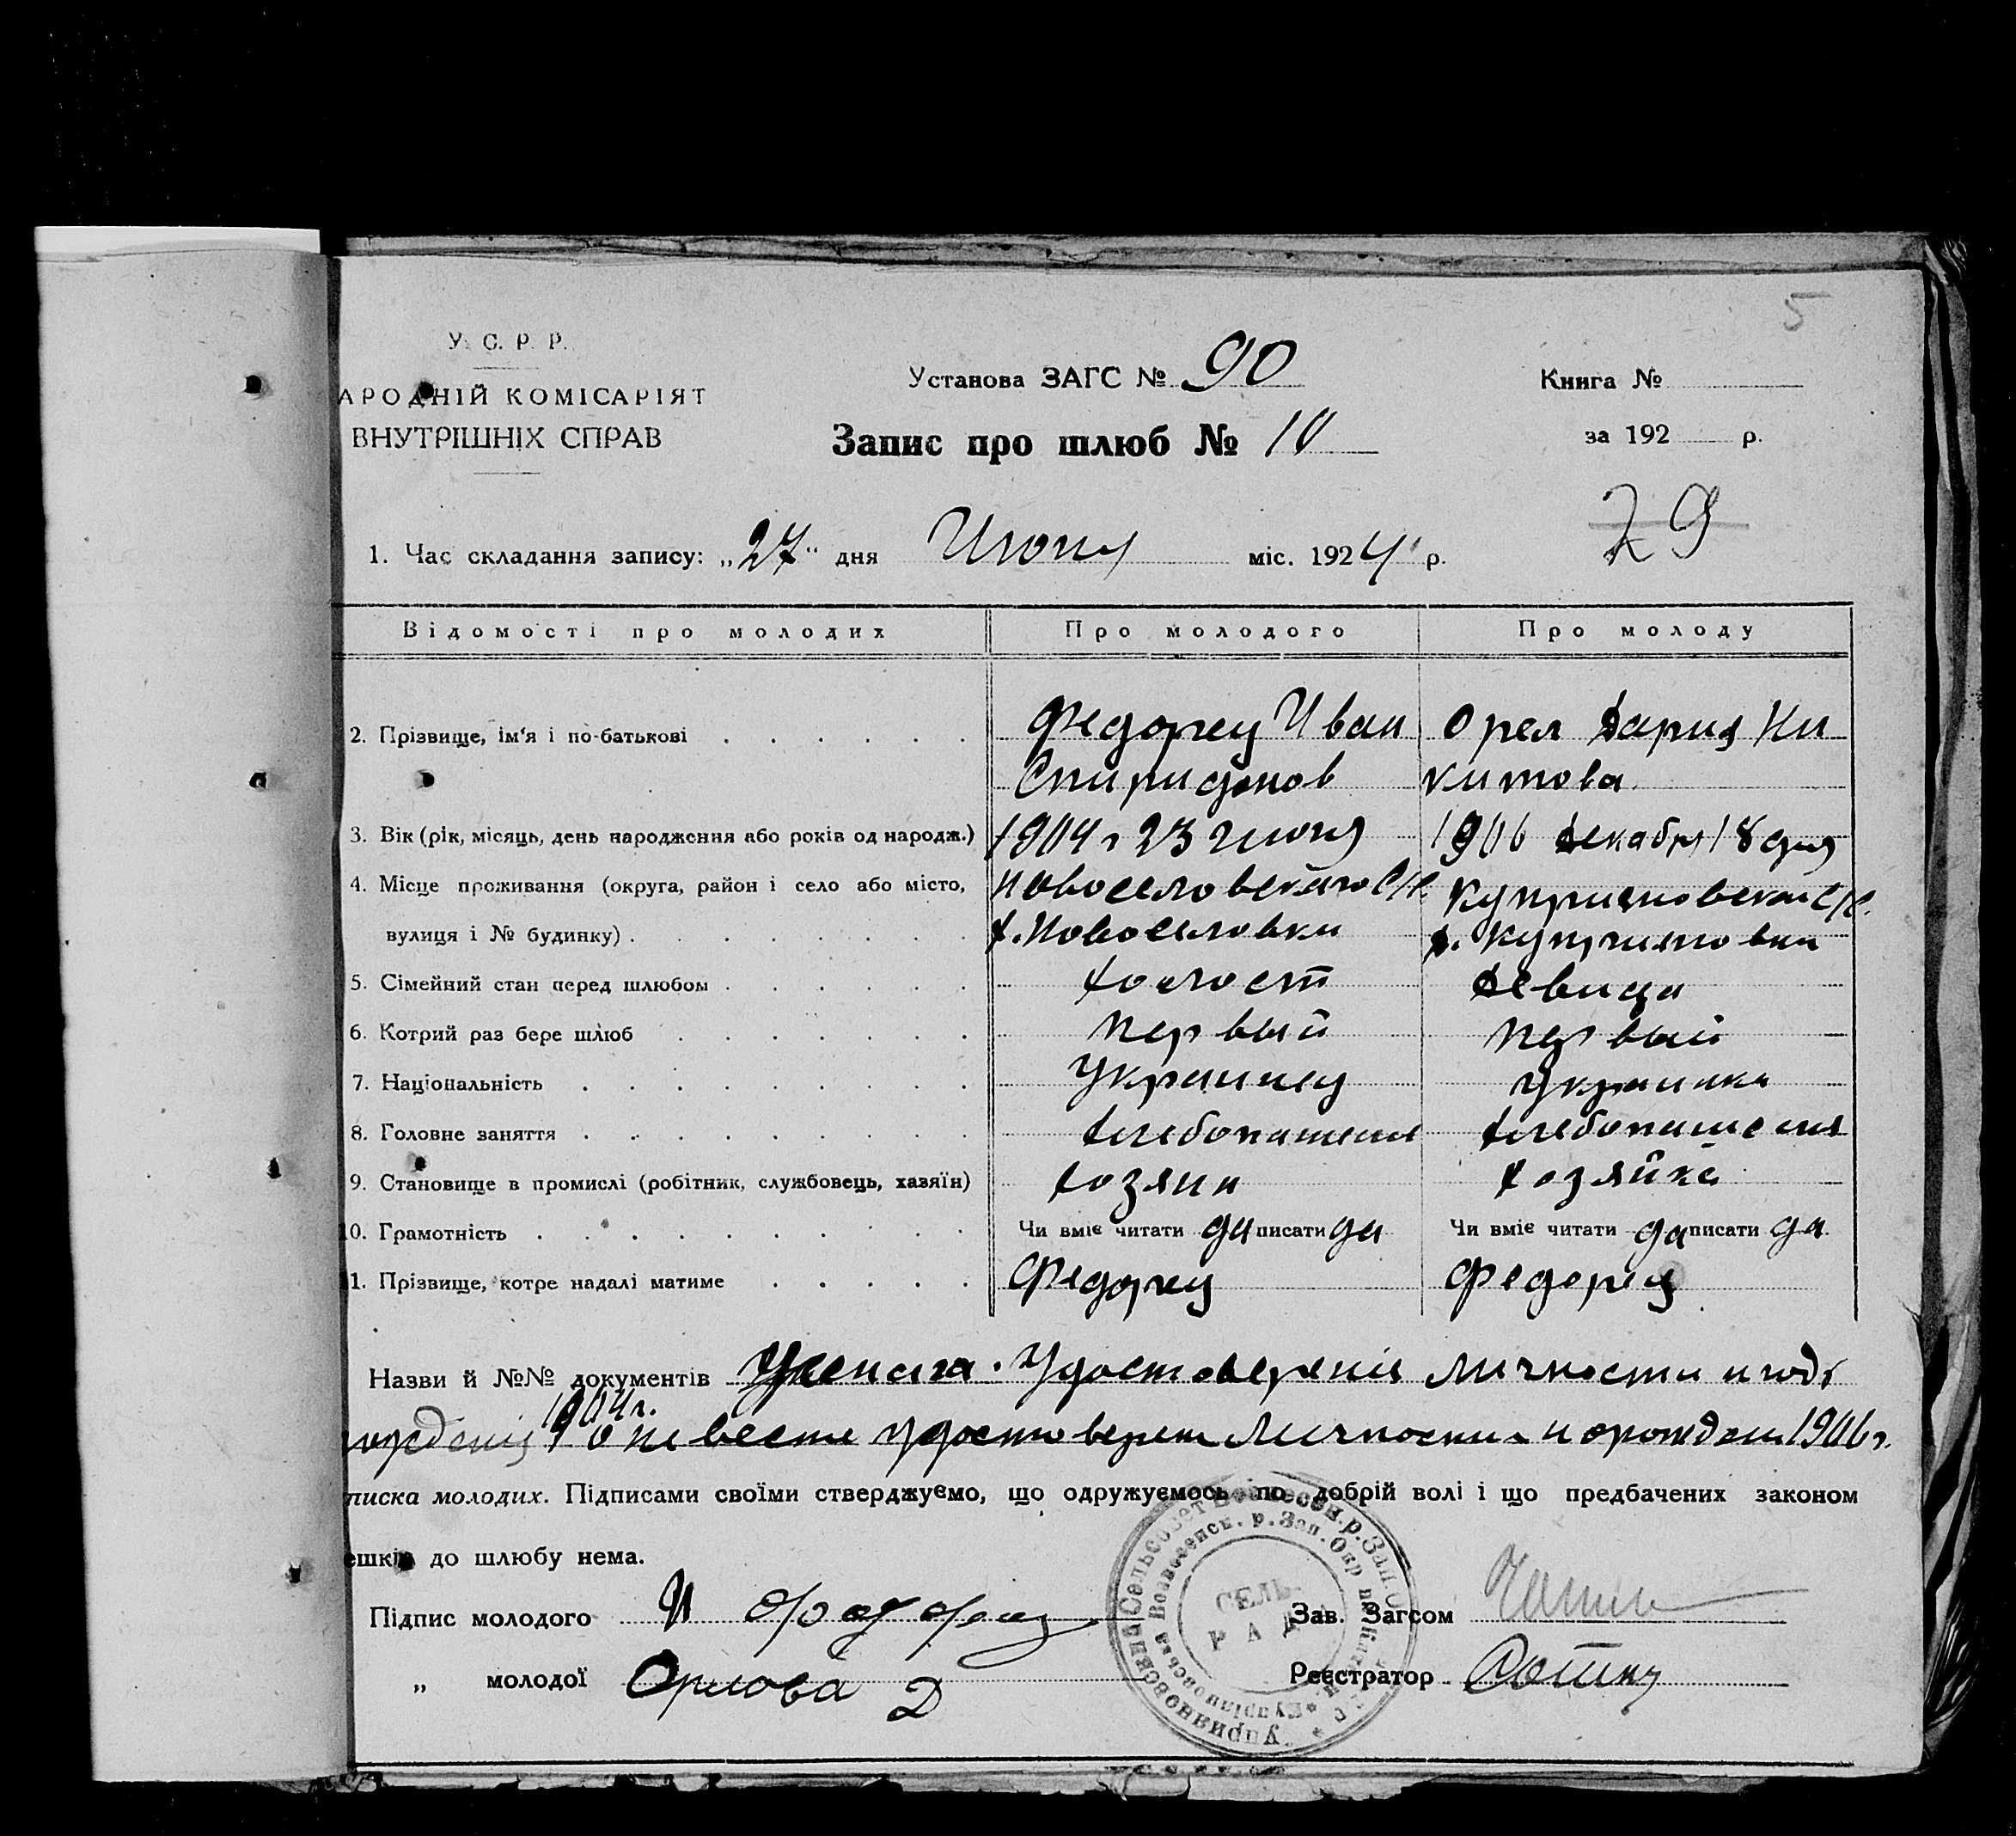 5
У. С. Р. Р.
АРОДНІЙ КОМІСАРІЯТ
ВНУТРІШНІХ СПРАВ
Установа ЗАГС № 90
Книга №
Запис про шлюб № 10
за 192 р.
29
1. Час складання запису: „27“ дня Июня міс. 1924 р.
Відомості про молодих Про молодого Про молоду
2. Прізвище, ім'я і по-батькові Федорец Иван Орел Дария Ни
Спиридонов китова
3. Вік (рік, місяць, день народження або років од народж.) 1904 г 23 июня 1906 декабря 18 дня
4. Місце проживання (округа, район і село або місто, Новоселовского С/С. Куприяновскаи С/С.
вулиця і № будинку) х. Новоселовки д. Куприяновки
5. Сімейний стан перед шлюбом холост девица
6. Котрий раз бере шлюб первый первый
7. Національність Украинец украинка
8. Головне заняття хлебопашеця хлебопашеця
9. Становище в промислі (робітник, службовець, хазяїн) хозяин хозяйка
10. Грамотність Чи вміє читати да писати да Чи вміє читати да писати да
1. Прізвище, котре надалі матиме Федорец Федорец
Назви й №№ документів Удостоверения личности и годе
1904 г.
рождения о невесте удостоверен личности и о рожден 1906 г.
писка молодих. Підписами своїми стверджуємо, що одружуємось по добрій волі і що предбачених законом
ешкід до шлюбу нема.
Підпис молодого И Федорец Зав. Загсом
„ молодої Орлова Д Реєстратор
СЕЛЬ-
РАДА